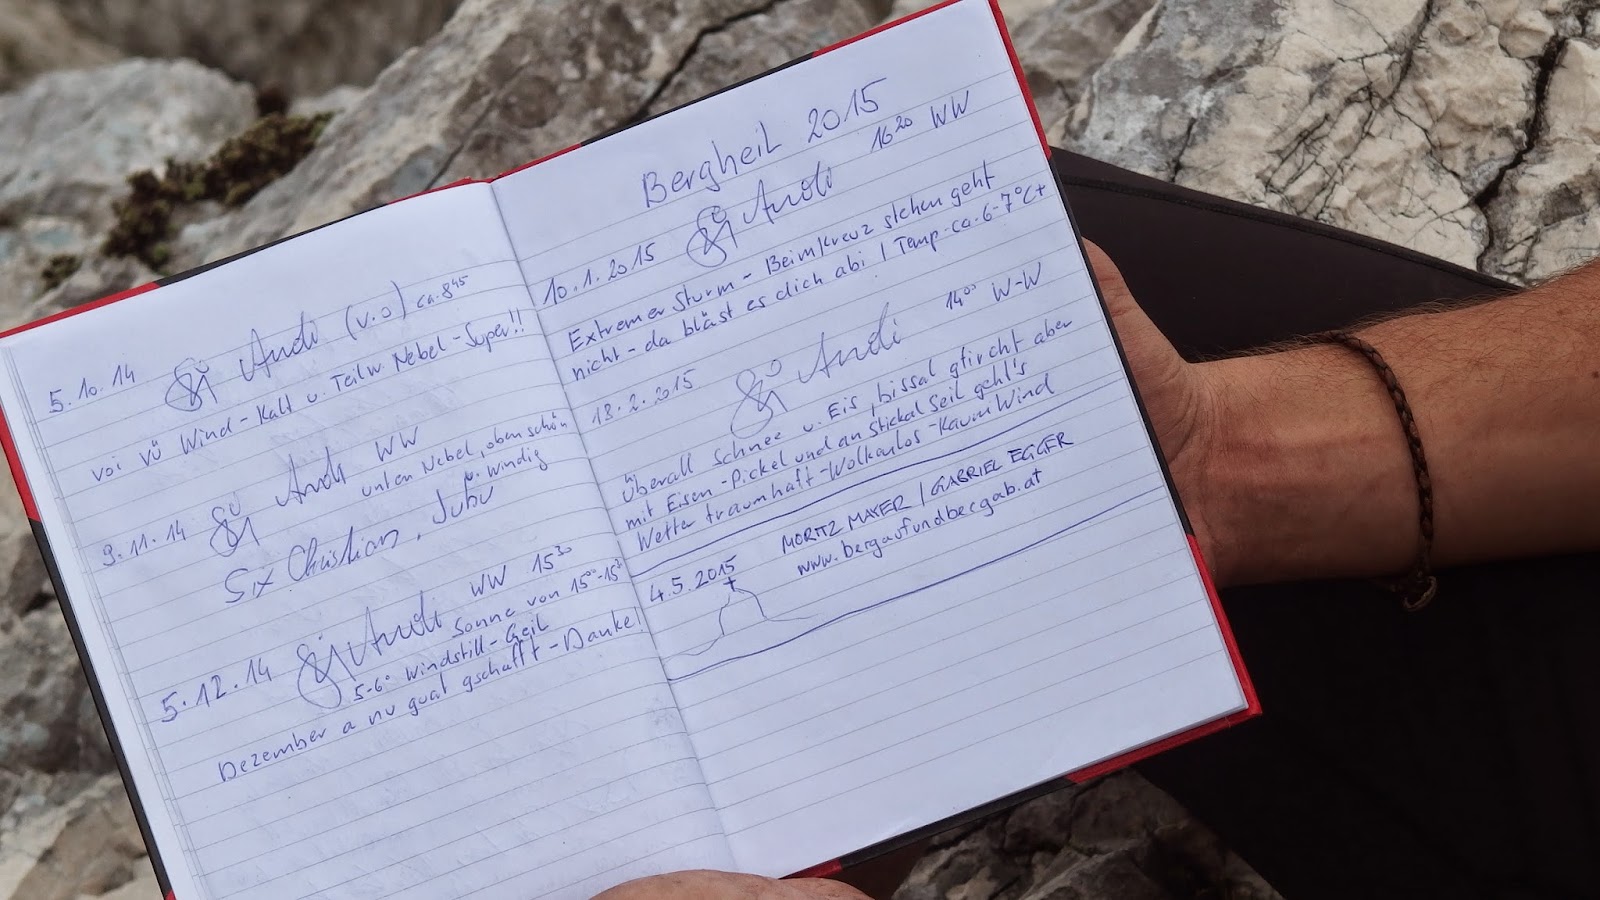 5.10.14 Andi (v.o) ca. 8⁴⁵
voi vü Wind - Kalt u. Teilw. Nebel - Super!!
9.11.14 Andi WW
unten Nebel, oben schön
u. windig
Six Christian,
5.12.14 Andi WW 15³⁰
Sonne von 15⁰⁰-15³⁰
5-6° Windstill - Geil
Dezember a nu guat gschafft - Danke!
Bergheil 2015
10.1.2015 Andi 16²⁰ WW
Extremer Sturm - Beim Kreuz stehen geht
nicht - da bläst es dich abi / Temp. ca. 6-7°C+
18.2.2015 Andi 14⁰⁰ W-W
Überall Schnee u. Eis, bissal gfircht aber
mit Eisen - Pickel und an Stickal Seil geht's
Wetter traumhaft - Wolkenlos - Kaum Wind
4.5.2015 MORITZ MAYER / GABRIEL EGGER
www.bergaufundbergab.at